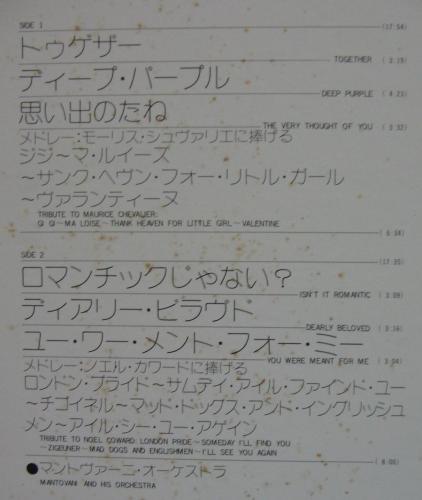 SIDE 1 (17:54)
トゥゲザー
TOGETHER ( 3:19)
ディープ・パープル
DEEP PURPLE ( 4:23)
思い出のたね
THE VERY THOUGHT OF YOU ( 3:32)
メドレー:モーリス・シュヴァリエに捧げる
ジジ〜マ・ルイーズ
〜サンク・ヘヴン・フォー・リトル・ガール
〜ヴァランティーヌ
TRIBUTE TO MAURICE CHEVALIER:
GI GI〜MA LOISE〜THANK HEAVEN FOR LITTLE GIRL〜VALENTINE
( 6:34)
SIDE 2 (17:35)
ロマンチックじゃない?
ISN'T IT ROMANTIC ( 3:09)
ディアリー・ビラヴド
DEARLY BELOVED ( 3:16)
ユー・ワー・メント・フォー・ミー
YOU WERE MEANT FOR ME ( 3:04)
メドレー:ノエル・カワードに捧げる
ロンドン・プライド〜サムデイ・アイル・ファインド・ユー
〜チゴイネル〜マッド・ドッグス・アンド・イングリッシュ
メン〜アイル・シー・ユー・アゲイン
TRIBUTE TO NOEL COWARD: LONDON PRIDE〜SOMEDAY I'LL FIND YOU
〜ZIGEUNER〜MAD DOGS AND ENGLISHMEN〜I'LL SEE YOU AGAIN
( 8:06)
●マントヴァーニ・オーケストラ
MANTOVANI AND HIS ORCHESTRA